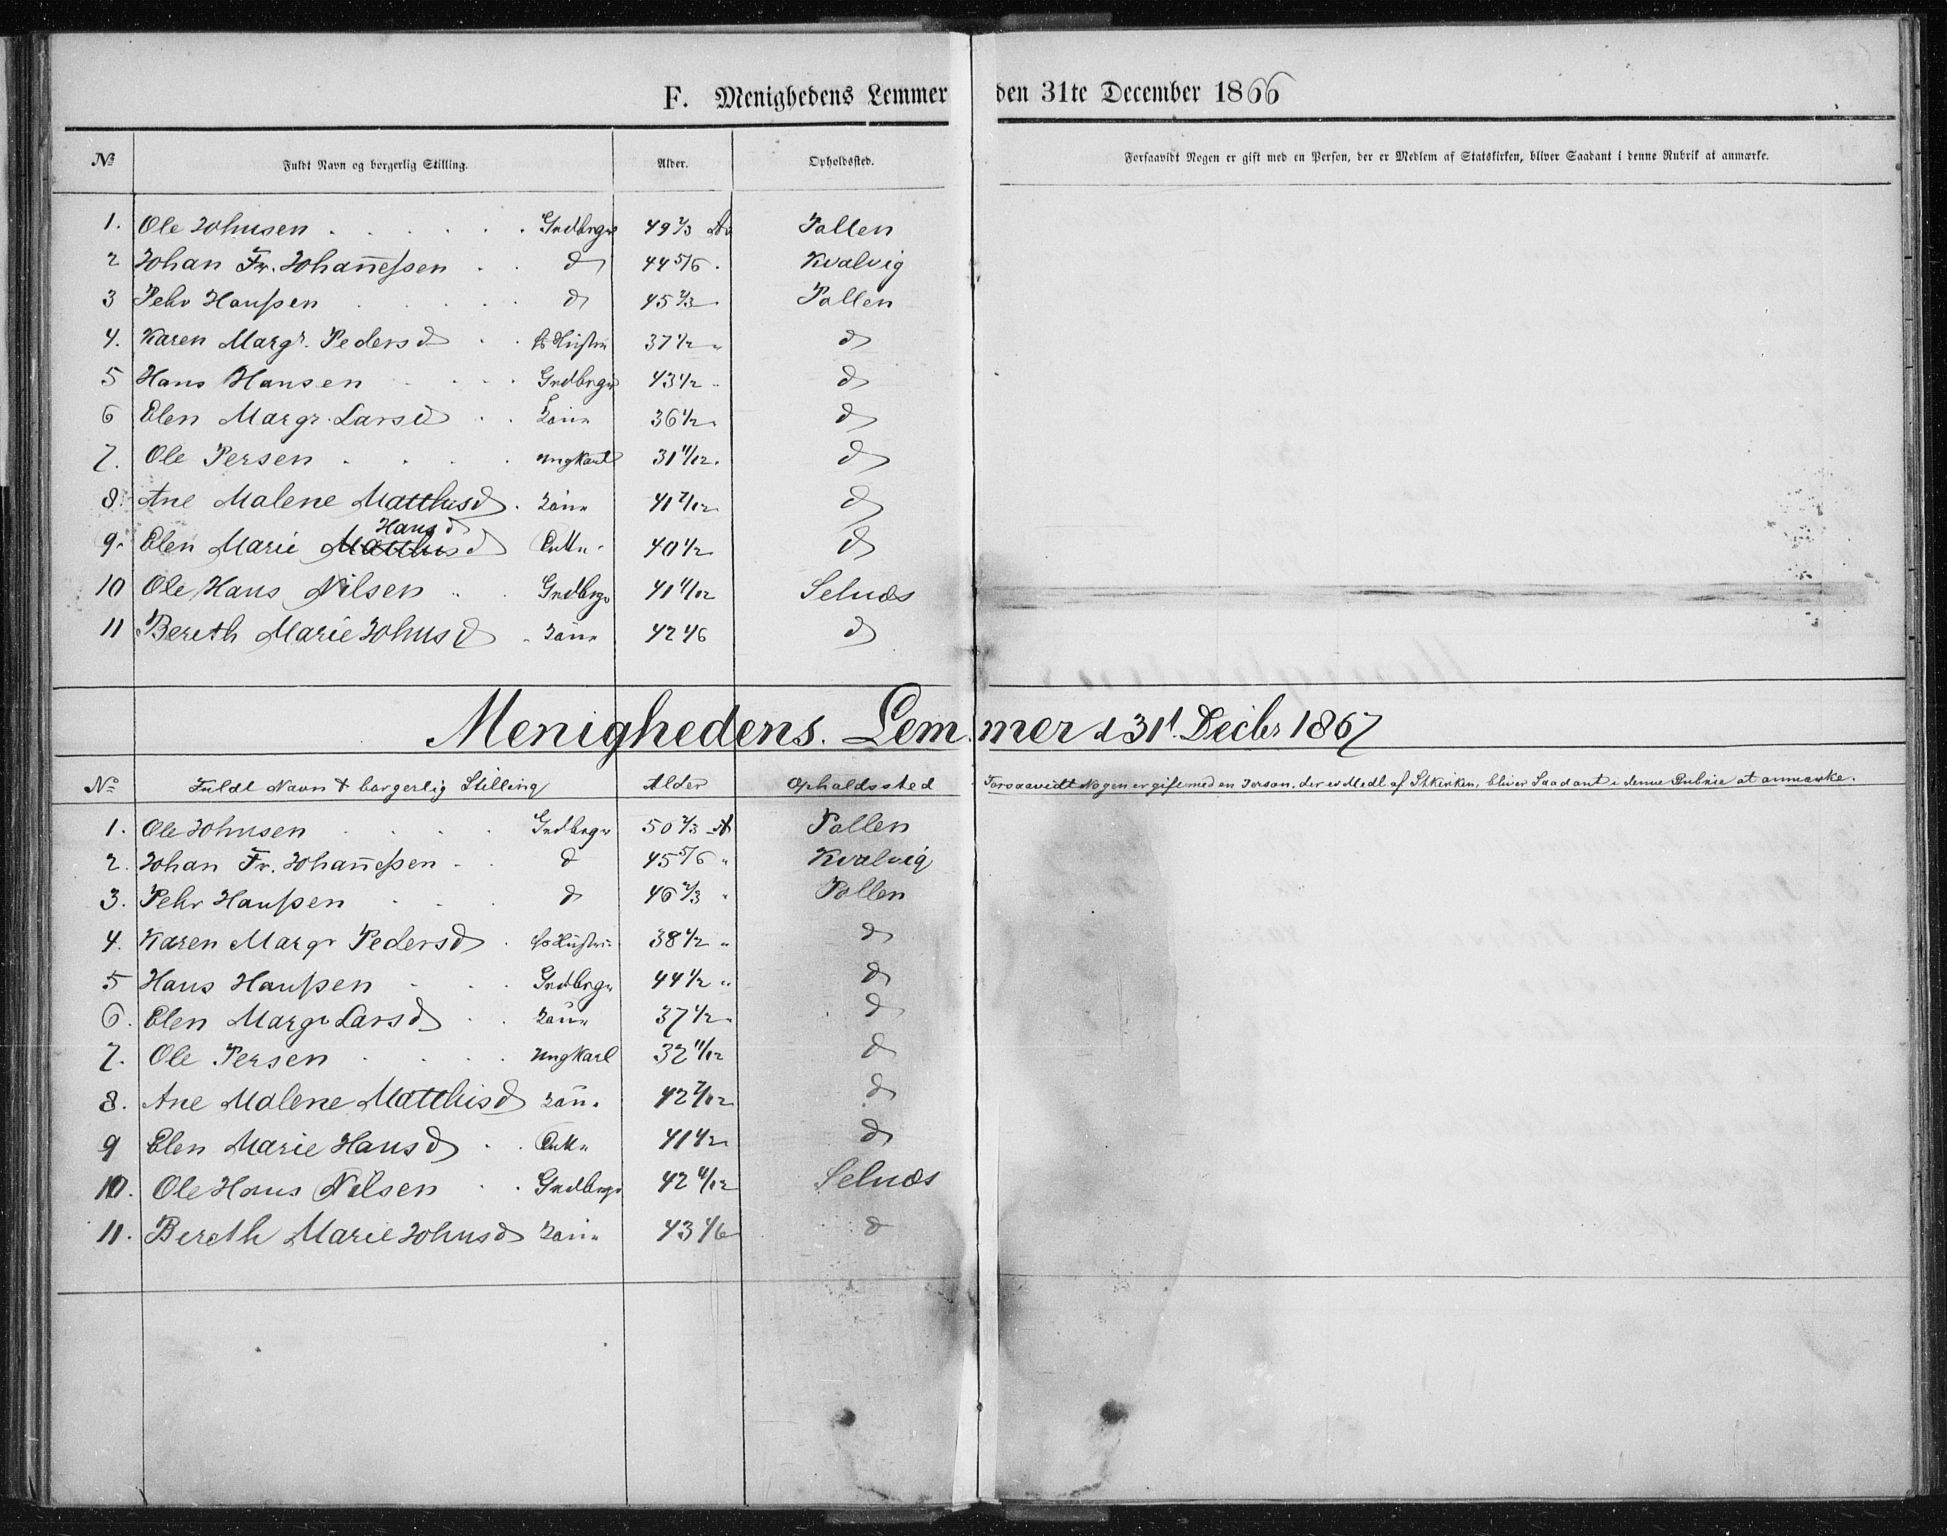 F. Menighedens Lemmer den 31te December 1866
No Fuldt Navn og borgerlig Stilling. Alder. Opholdssted. Forsaavidt Nogen er gift med en Person, der er Medlem af Statskirken, bliver Saadant i denne Rubrik at anmærke.
1. Ole Johnsen Grdbrgr 49 2/3 Aar Pollen
2 Johan Fr. Johaneſsen d 44 5/6 Kvalvig
3 Pehr Hanſsen d 45 2/3 Pollen
4. Karen Margr. Pedersd Hustru 37 1/2 " d
5 Hans Hansen Grdbrgr 43 1/2 d
6 Elen Margr. Larsd 36 1/2 d
7. Ole Persen Ungkarl 31 11/12 d
8. Ane Malene Matthisd 41 7/12 d
Hansd
9. Elen Marie Matthisd Enke 40 1/2 d
10 Ole Hans Nilsen Grdbrgr 41 11/12 Selnæs
11 Bereth Marie Johnsd 42 1/6 d
Menighedens Lemmer d 31t. Decbr 1867
No Fuldt Navn & borgerlig Stilling Alder Opholdssted Forsaavidt Nogen er gift med en Person, der er Medl af Stkirken, bliver Saadant i denne Rubrik at anmærke.
1. Ole Johnsen Grdbrgr 50 2/3 A Pollen
2. Johan Fr. Johaneſsen d 45 5/6 " Kvalvig
3. Pehr Hanſsen d 46 2/3 " Pollen
4. Karen Margr Pedersd Hustru 38 1/2 " d
5 Hans Hanſsen Grdbrgr 44 1/2 " d
6. Elen Margr Larsd 37 1/2 " d
7. Ole Persen Ungkarl 32 11/12 d
8. Ane Malene Matthisd 42 7/12 d
9 Elen Marie Hansd Enke 41 1/2 d
10. Ole Hans Nilsen Grdbrgr 42 11/12 Selnæs
11. Bereth Marie Johnsd 43 1/6 d